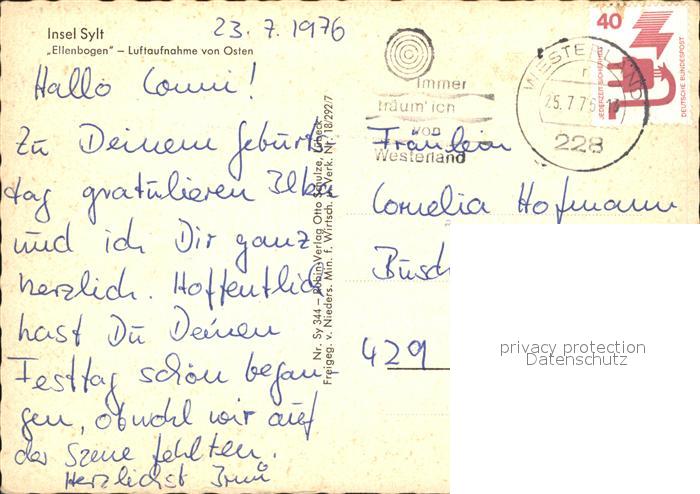 Insel Sylt
„Ellenbogen" – Luftaufnahme von Osten
23.7.1976
Hallo Conni!
Zu Deinem Geburts-
tag gratulieren Elke
und ich Dir ganz
herzlich. Hoffentlich
hast Du Deinen
Festtag schön began-
gen, obwohl wir auf
der Szene fehlten.
Herzlichst
Nr. Sy 344 – Rubin-Verlag Otto Schulze, Lübeck
Freigeg. v. Nieders. Min. f. Wirtsch. u. Verk. Nr. 18/292/7
immer
träum' ich
von
Westerland
WESTERLAND
25.7.76
228
40
JEDERZEIT SICHERHEIT
DEUTSCHE BUNDESPOST
Fräulein
Cornelia Hofmann
429
privacy protection
Datenschutz